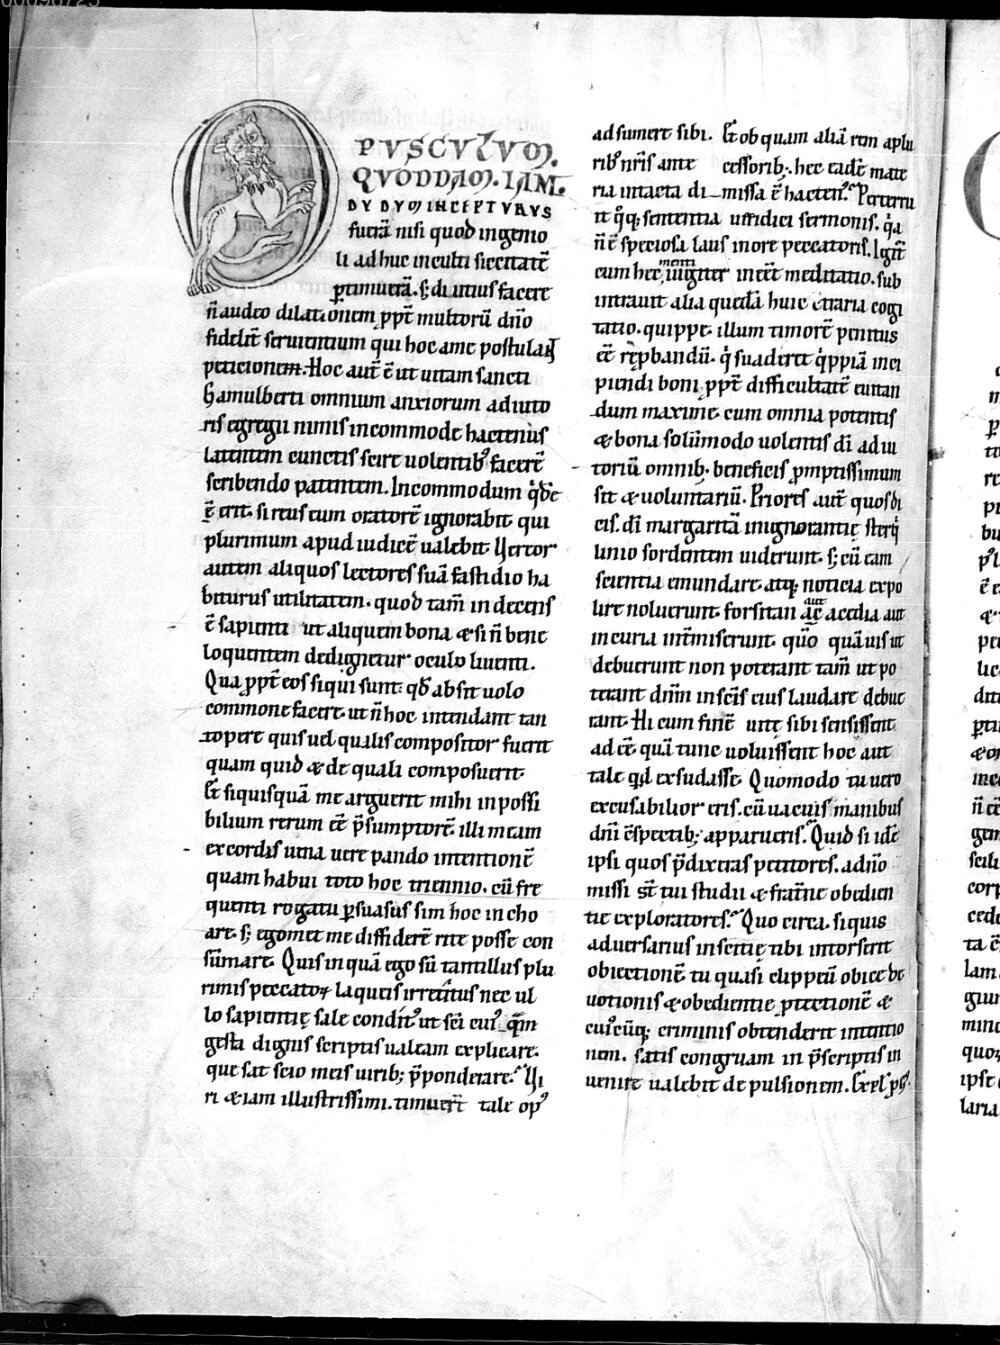 OPVSCVLVM.
QVODDAM. IAM.
DVDVM INCEPTVRVS
fuerã nisi quod ingenio
li ad huc inculti siccitatẽ
ꝑtimuerã. s; diutius facere
ñ audeo dilationem ꝓpt̃ multorũ dño
fidelit̃ seruientium qui hoc a me postulaɳt
peticionem. Hoc aut̃ ẽ ut uitam sancti
hamulberti omnium anxiorum adiuto
ris egregii nimis incommode hactenus
latentem cunctis scire uolentib᷒ facerẽ
scribendo patentem. Incommodum
ẽ erit. si reus eum oratorẽ ignorabit qui
plurimum apud iudicẽ ualebit. Vereor
autem aliquos lectores suã fastidio ha
bituros utilitatem. quod tam̃ indecens
ẽ sapienti ut aliquem bona & si ñ bene
loquentem dedignetur oculo liuenti.
Qua ꝓpt̃ eos siqui sunt. qđ absit uolo
commonefacere. ut ñ hoc intendant tan
topere quis uel qualis compositor fuerit
quam quid & de quali composuerit.
Et siquisquã me arguerit mihi inpossi
bilium rerum eẽ p̃sumptorẽ. illi meam
ex cordis uena uere pando intentionẽ
quam habui toto hoc triennio. cũ fre
quenti rogatu ꝑsuasus sim hoc incho
are. s; egomet me diffiderẽ rite posse con
sũmare. Quis inquã ego sũ tantillus plu
rimis peccatoꝝ laqueis irretitus nec ul
lo sapientię sale condit᷒ ut sc̃i cui᷒
gesta dignis scriptis ualeam explicare.
que sat scio meis uirib; p̃ponderare. Vi
ri &iam illustrissimi. timuert̃ tale op᷒
adsumere sibi. Et ob quam aliã rem a plu
rib᷒ nr̃is ante cessorib;. hec eadẽ mate
ria intacta di missa ẽ hacten᷒. Perterru
it q͛q; sententia ueridici sermonis. q͛a
ñ ẽ speciosa laus in ore peccatoris. Igit̃
cum hec menti iugiter ineẽt meditatio. sub
intrauit alia quedã huic ctraria cogi
tatio. quippe. illum timorẽ penitus
eẽ rep̱bandũ. q͛ suaderet q͛ppiã inci
piendi boni ꝓpt̃ difficultatẽ euitan
dum maxime cum omnia potentis
& bona solũmodo uolentis di adiu
toriũ omnib; beneficiis ꝓmptissimum
sit & uoluntariũ. Priores aut̃ quos di
cis. di margaritã in ignorantię sterq͛
linio sordentem uiderunt. s; cũ eam
scientia emundare atq; noticia expo
lire noluerunt. forsitan aut accedia aut
incuria int̃miserunt. quõ quãuis ut
debuerunt non poterant tam̃ ut po
terant dñm in scis eius laudare debue
rant. Hi cum finẽ uitę sibi sensissent
adeẽ quã tunc uoluissent hoc aut
tale qid exsudasse. Quomodo tu uero
excusabilior eris. cũ uacuis manibus
dñi cspectib; apparueris. Quid si idẽ
ipsi quos p̃dixeras peritores. adño
missi st̃ tui studii & frat̃ne obedien
tie exploratores. Quo circa. siquis
aduersarius insertię tibi intorserit
obiectionẽ tu quasi clippeũ obice de
uotionis & obedientie ꝓtectionẽ &
cui᷒cũq; criminis obtenderit intentio
nem. satis congruam in p̃scriptis in
uenire ualebit depulsionem. Expl̃